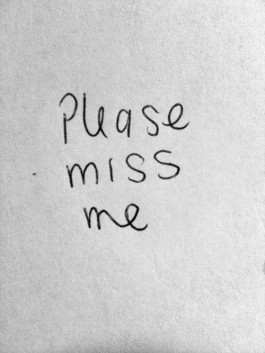 please
miss
me